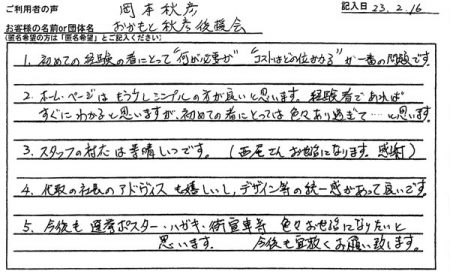 ご利用者の声
記入日 23.2.16
岡本秋彦
お客様の名前or団体名 おかもと秋彦後援会
(匿名希望の方は「匿名希望」とご記入ください)
1. 初めての経験の者にとって"何が必要か" "コストはどの位かかる"が一番の問題です
2. ホームページはもう少しシンプルの方が良いと思います。経験者であれば
すぐにわかると思いますが、初めての者にとっては色々あり過ぎて…と思います
3. スタッフの対応は素晴しいです。(西尾さんお世話になります。感謝)
4. 代取の社長のアドヴィスも嬉しいし、デザイン等の統一感があって良いです。
5. 今後も選挙ポスター・ハガキ・街宣車等 色々お世話になりたいと
思います。 今後も宜敷くお願い致します。